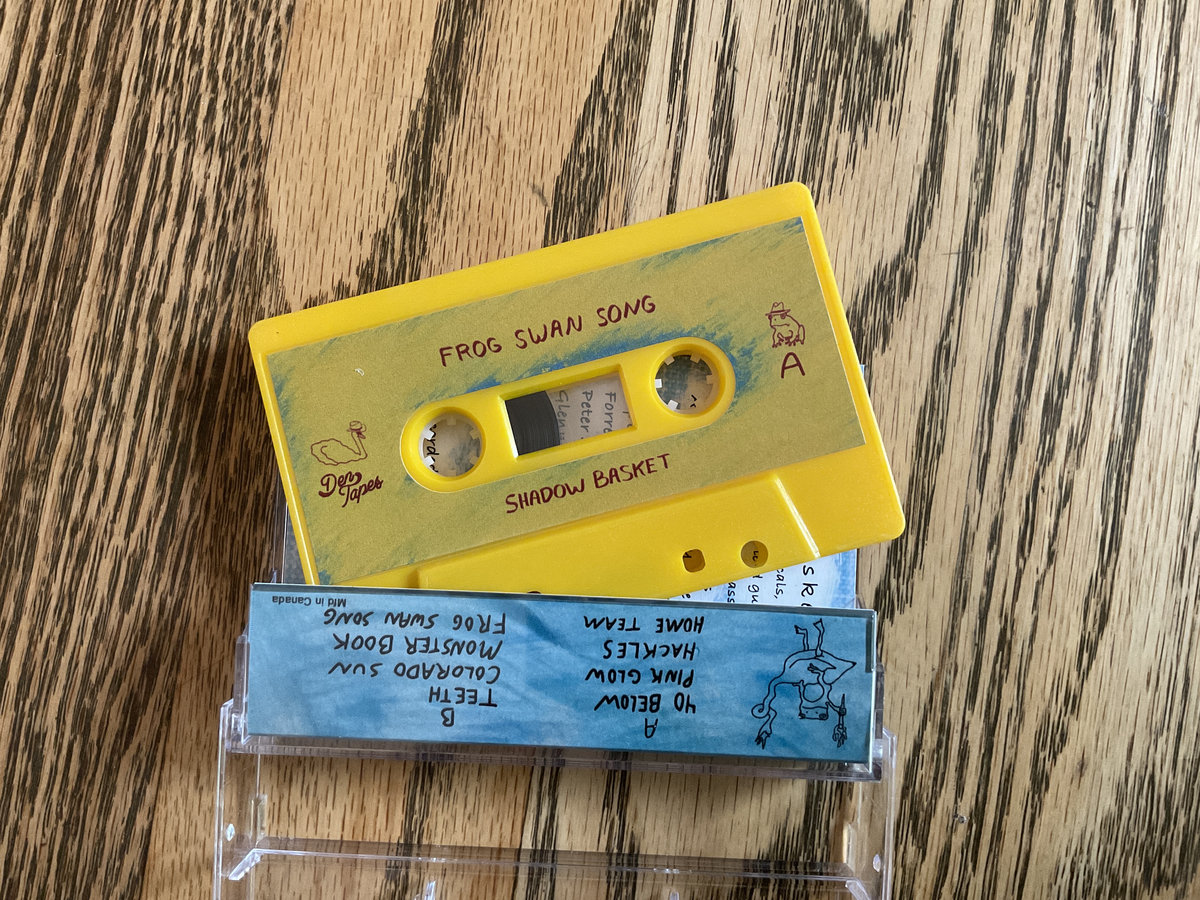 FROG SWAN SONG
A
Den
Tapes
SHADOW BASKET
Forre
Peter
Glen
A
40 BELOW
PINK GLOW
HACKLES
HOME TEAM
B
TEETH
COLORADO SUN
MONSTER BOOK
FROG SWAN SONG
Mfd in Canada